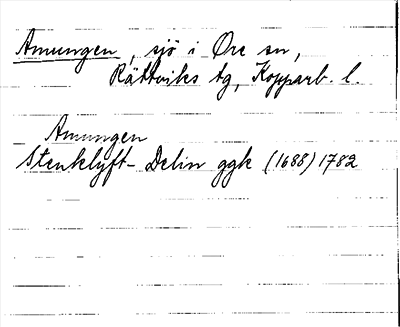 Amungen, sjö i Ore sn,
Rättviks tg, Kopparb. l.
Amungen
Stenklyft-Delin ggk (1688) 1782